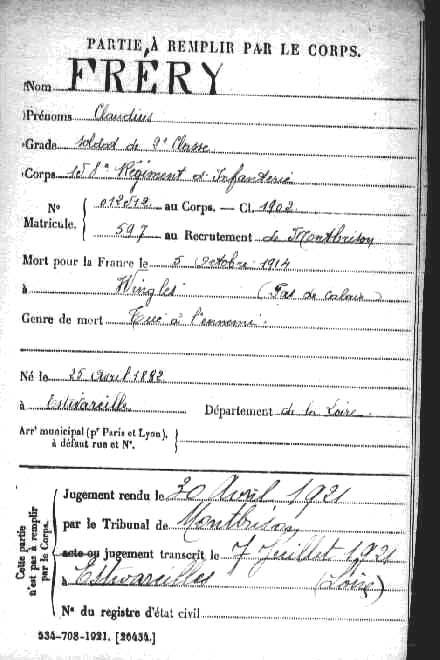 PARTIE À REMPLIR PAR LE CORPS.
Nom FRÉRY
Prénoms Claudius
Grade soldat de 2e Classe
Corps 158e Régiment d'Infanterie
N° Matricule. 012512 au Corps. — Cl. 1902
597 au Recrutement de Montbrison
Mort pour la France le 5 octobre 1914
à Wingles (Pas de Calais)
Genre de mort Tué à l'ennemi.
Né le 25 avril 1882
à Estivareilles Département de la Loire
Arrt municipal (pr Paris et Lyon),
à défaut rue et N°.
Cette partie
n'est pas à remplir
par le Corps.
Jugement rendu le 30 Avril 1921
par le Tribunal de Montbrison
acte ou jugement transcrit le 7 Juillet 1921
à Estivareilles (Loire)
N° du registre d'état civil
534-708-1921. [26434.]